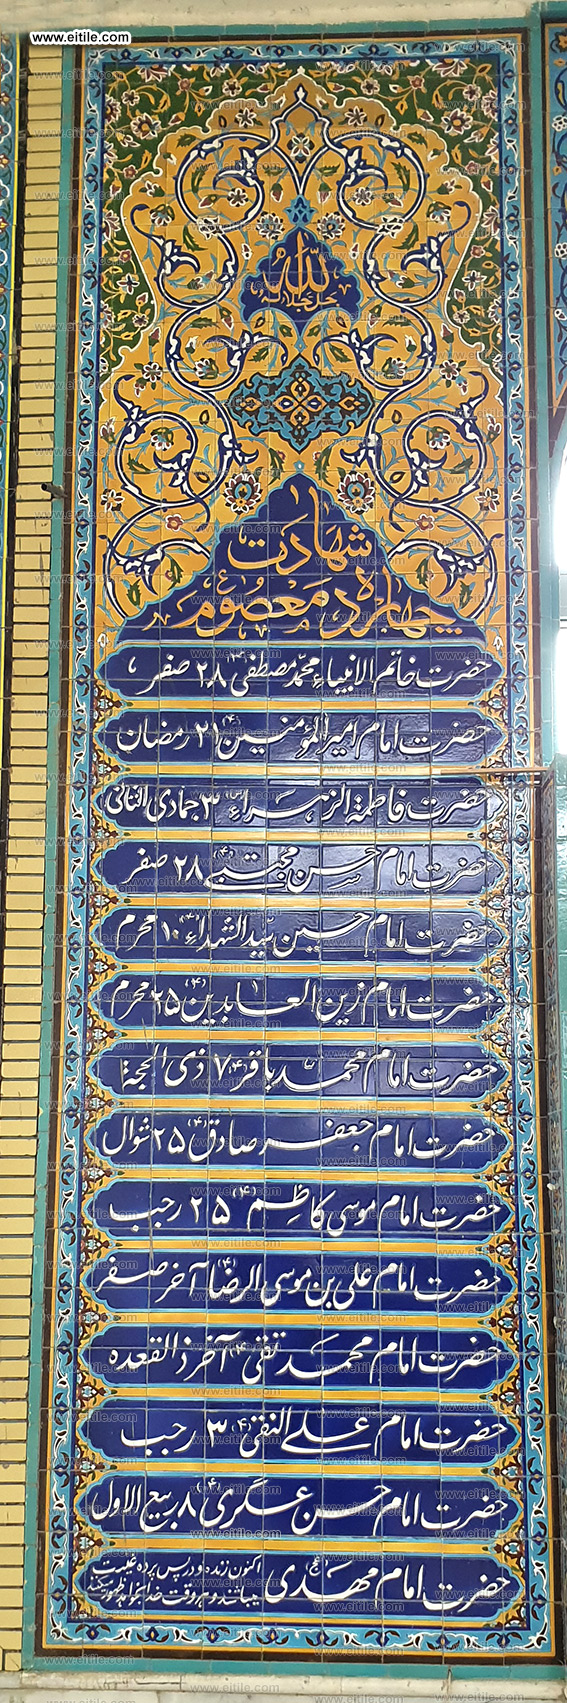 www.eitile.com
الله
جل جلاله
شهادت
چهارده معصوم
حضرت خاتم الانبیاء محمد مصطفی (ص) ۲۸ صفر
حضرت امام امیرالمؤمنین (ع) ۲۱ رمضان
حضرت فاطمة الزهراء (س) ۳ جمادی الثانی
حضرت امام حسن مجتبی (ع) ۲۸ صفر
حضرت امام حسین سیدالشهداء (ع) ۱۰ محرم
حضرت امام زین العابدین (ع) ۲۵ محرم
حضرت امام محمد باقر (ع) ۷ ذی الحجة
حضرت امام جعفر صادق (ع) ۲۵ شوال
حضرت امام موسی کاظم (ع) ۲۵ رجب
حضرت امام علی بن موسی الرضا (ع) آخر صفر
حضرت امام محمد تقی (ع) آخر ذالقعده
حضرت امام علی النقی (ع) ۳ رجب
حضرت امام حسن عسگری (ع) ۸ ربیع الاول
حضرت امام مهدی (عج) اکنون زنده و در پس پرده غیبت
وقت خدا بخواهد ظهور